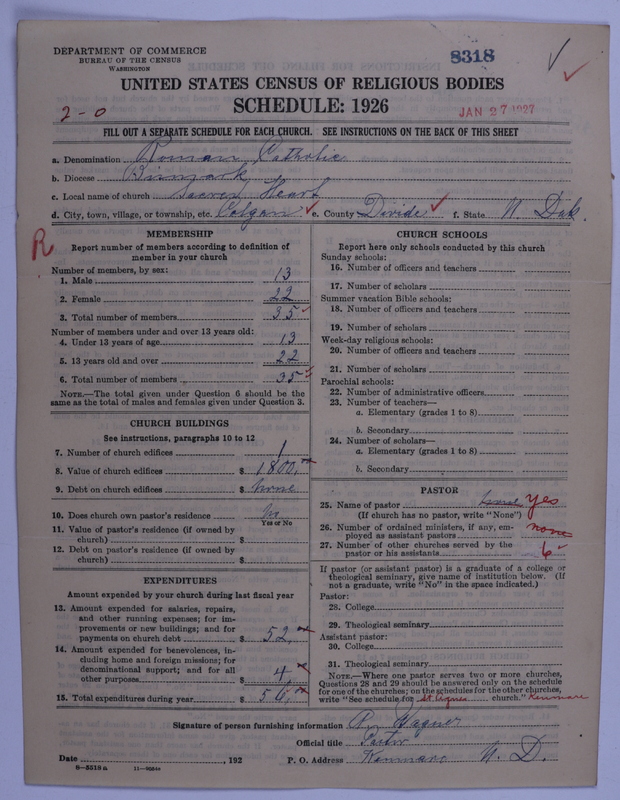 DEPARTMENT OF COMMERCE
BUREAU OF THE CENSUS
WASHINGTON
8318
UNITED STATES CENSUS OF RELIGIOUS BODIES
SCHEDULE: 1926
2-0
JAN 27 1927
FILL OUT A SEPARATE SCHEDULE FOR EACH CHURCH. SEE INSTRUCTIONS ON THE BACK OF THIS SHEET
a. Denomination Roman Catholic
b. Diocese Bismark
c. Local name of church Sacred Heart
d. City, town, village, or township, etc. Colgan e. County Divide f. State N Dak.
R
MEMBERSHIP
Report number of members according to definition of
member in your church
Number of members, by sex:
1. Male 13
2. Female 22
3. Total number of members 35
Number of members under and over 13 years old:
4. Under 13 years of age 13
5. 13 years old and over 22
6. Total number of members 35
NOTE.—The total given under Question 6 should be
same as the total of males and females given under Question 3.
CHURCH BUILDINGS
See instructions, paragraphs 10 to 12
7. Number of church edifices 1
8. Value of church edifices $ 1800.
9. Debt on church edifices $ none
10. Does church own pastor's residence
Yes or No
11. Value of pastor's residence (if owned by
church) $
12. Debt on pastor's residence (if owned by
church) $
EXPENDITURES
Amount expended by your church during last fiscal year
13. Amount expended for salaries, repairs,
and other running expenses; for im-
provements or new buildings; and for
payments on church debt $ 52.
14. Amount expended for benevolences, in-
cluding home and foreign missions; for
denominational support; and for all
other purposes $ 4.
15. Total expenditures during year $ 56.
CHURCH SCHOOLS
Report here only schools conducted by this church
Sunday schools:
16. Number of officers and teachers
17. Number of scholars
Summer vacation Bible schools:
18. Number of officers and teachers
19. Number of scholars
Week-day religious schools:
20. Number of officers and teachers
21. Number of scholars
Parochial schools:
22. Number of administrative officers
23. Number of teachers—
a. Elementary (grades 1 to 8)
b. Secondary
24. Number of scholars—
a. Elementary (grades 1 to 8)
b. Secondary
PASTOR
25. Name of pastor yes
(If church has no pastor, write "None")
26. Number of ordained ministers, if any, em-
ployed as assistant pastors none
27. Number of other churches served by the
pastor or his assistants 6
If pastor (or assistant pastor) is a graduate of a college or
theological seminary, give name of institution below. (If
not a graduate, write "No" in the space indicated.)
Pastor:
28. College
29. Theological seminary
Assistant pastor:
30. College
31. Theological seminary
NOTE.—Where one pastor serves two or more churches,
Questions 28 and 29 should be answered only on the schedule
for one of the churches; on the schedules for the other churches,
write "See schedule for St Agnes church." Kenmare
Signature of person furnishing information Wagner
Official title Pastor
Date , 192 P. O. Address Kenmare N. D.